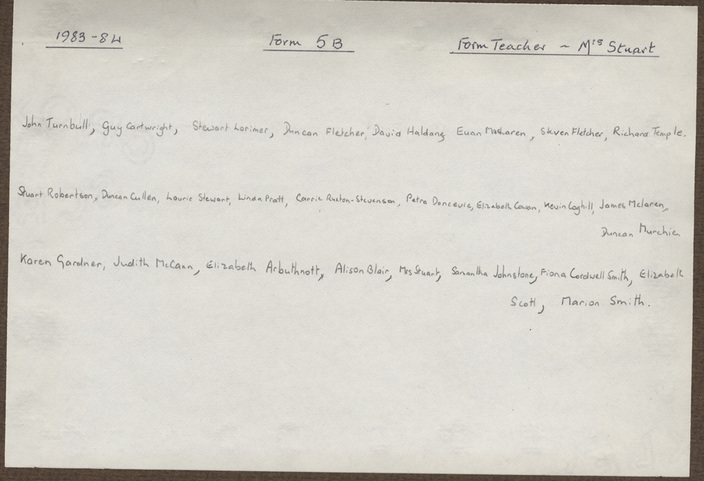 1983-84 Form 5B Form Teacher ~ Mrs Stuart
John Turnbull, Guy Cartwright, Stewart Lorimer, Duncan Fletcher, David Haldane, Euan McLaren, Steven Fletcher, Richard Temple.
Stuart Robertson, Duncan Cullen, Laurie Stewart, Linda Pratt, Carrie Ruxton-Stevenson, Petra Elizabeth Cowan, Kevin Coghill, James McLaren,
Duncan Murchie
Karen Gardner, Judith McCann, Elizabeth Arbuthnott, Alison Blair, Mrs Stuart, Samantha Johnstone, Fiona Cordwell Smith, Elizabeth
Scott, Marion Smith.